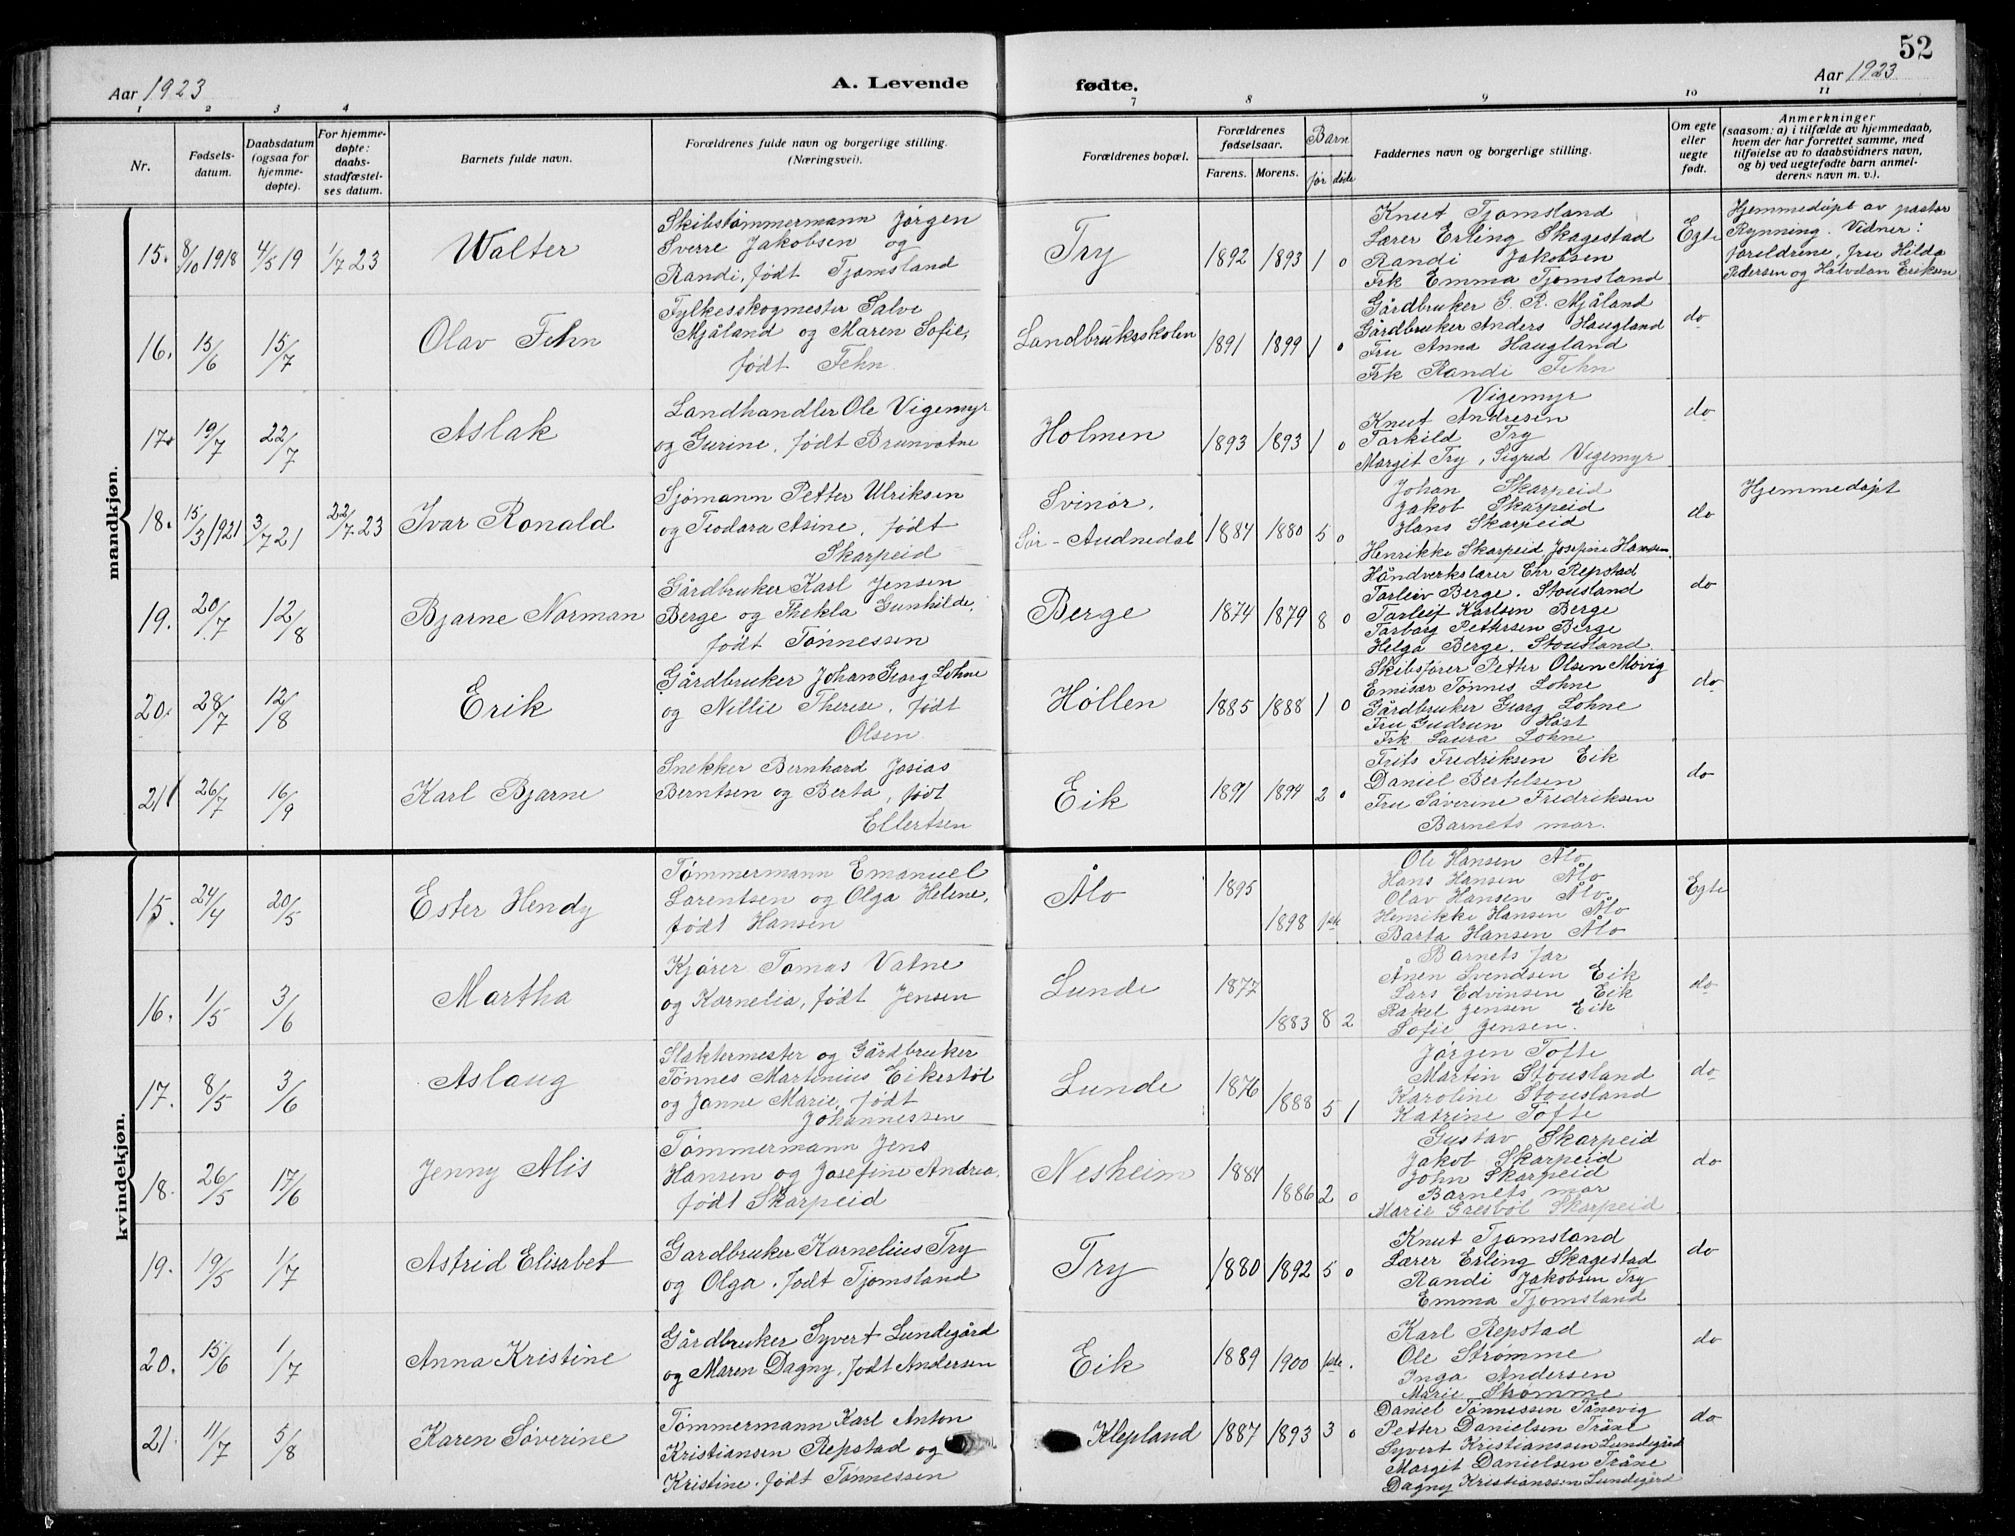 52
Aar 1923 A. Levende fødte. Aar 1923
1 2 3 4 7 8 9 10 11
Nr.
Fødsels-
datum.
Daabsdatum
(ogsaa for
hjemme-
døpte).
For hjemme-
døpte:
daabs-
stadfæstel-
ses datum.
Barnets fulde navn.
Forældrenes fulde navn og borgerlige stilling.
(Næringsvei).
Forældrenes bopæl.
Forældrenes
fødselsaar.
Farens. Morens.
Barn
før døde
Faddernes navn og borgerlige stilling.
Om egte
eller
uegte
født.
Anmerkninger
(saasom: a) i tilfælde av hjemmedaab,
hvem der har forrettet samme, med
tilføielse av to daabsvidners navn,
og b) ved uegtefødte barn anmel-
derens navn m. v.).
mandkjøn.
15. 8/10 1918 4/5 19 1/7 23 Walter
Skibstømmermann Jørgen
Sverre Jakobsen og
Randi, født Tjomsland
Try 1892 1893 1 0
Knut Tjomsland
Lærer Erling Skagestad
Randi Jakobsen
Frk Emma Tjomsland
Egte
Hjemmedøpt av pastor
Rynning. Vidner:
foreldrene, fru Hilda
Pedersen og Halvdan Eriksen
16. 15/6 15/7 Olav Fehn
Fylkesskogmester Salve
Mjåland og Maren Sofie,
født Fehn
Landbruksskolen 1891 1899 1 0
Gårdbruker G. R. Mjåland
Gårdbruker Anders Haugland
Fru Anna Haugland
Frk Randi Fehn
do
17. 19/7 22/7 Aslak
Landhandler Ole Vigemyr
og Gurine, født Brunvatne
Holmen 1893 1893 1 0
Vigemyr
Knut Andresen
Torkild Try
Margit Try, Sigrid Vigemyr
do
18. 15/3 1921 3/7 21 22/7 23 Ivar Ronald
Sjømann Petter Ulriksen
og Teodora Asine, født
Skarpeid
Svinør,
Sør-Audnedal 1884 1880 5 0
Johan Skarpeid
Jakob Skarpeid
Hans Skarpeid
Henrikke Skarpeid, Josefine Hansen
do
Hjemmedøpt
19. 20/7 12/8 Bjarne Norman
Gårdbruker Karl Jensen
Berge og Thekla Gunhilde,
født Tønnessen
Berge 1874 1879 8 0
Håndverkslærer Chr Repstad
Torleiv Berge, Stousland
Torleif Karlsen Berge
Torborg Pettersen Berge
Helga Berge, Stousland
do
20. 28/7 12/8 Erik
Gårdbruker Johan Georg Lohne
og Nillie Therese, født
Olsen
Høllen 1885 1888 1 0
Skibsfører Petter Olsen Møvig
Emisær Tønnes Lohne
Gårdbruker Georg Lohne
Fru Gudrun Høst
Frk Laura Lohne
do
21 26/7 16/9 Karl Bjarne
Snekker Bernhard Josias
Berntsen og Berta, født
Ellertsen
Eik 1891 1894 2 0
Frits Fredriksen Eik
Daniel Bertelsen
Fru Søverine Fredriksen
Barnets mor.
do
kvindekjøn.
15. 24/4 20/5 Ester Hendy
Tømmermann Emanuel
Lorentsen og Olga Helene,
født Hansen
Ålo 1895 1898 1ste
Ole Hansen Ålo
Hans Hansen Ålo
Olav Hansen Ålo
Henrikke Hansen Ålo
Barta Hansen Ålo
Egte
16. 1/5 3/6 Martha
Kjører Tomas Vatne
og Kornelia, født Jensen
Lunde 1877 1883 8 2
Barnets far
Ånen Svendsen Eik
Lars Edvinsen Eik
Rakel Jensen Eik
Sofie Jensen.
do
17. 8/5 3/6 Aslaug
Slaktermester og Gårdbruker
Tønnes Martinius Eikertøl
og Janne Marie, født
Johannessen
Lunde 1876 1888 5 1
Jørgen Tofte
Martin Stousland
Karoline Stousland
Katrine Tofte
do
18. 26/5 17/6 Jenny Alis
Tømmermann Jens
Hansen og Josefine Andrea,
født Skarpeid
Nesheim 1884 1886 2 0
Gustav Skarpeid
Jakob Skarpeid
John Skarpeid
Barnets mor
Marie Gresbøl Skarpeid
do
19. 19/5 1/7 Astrid Elisabet
Gardbruker Kornelius Try
og Olga, født Tjomsland
Try 1880 1892 5 0
Knut Tjomsland
Lærer Erling Skagestad
Randi Jakobsen Try
Emma Tjomsland
do
20. 15/6 1/7 Anna Kristine
Gårdbruker Syvert Lundegård
og Maren Dagny, født Andersen
Eik 1889 1900 1ste.
Karl Repstad
Ole Strømme
Inga Andersen
Marie Strømme
do
21 11/7 5/8 Karen Søverine
Tømmermann Karl Anton
Kristiansen Repstad og
Kristine, født Tønnessen
Klepland 1887 1893 3 0
Daniel Tønnessen Tånevig
Petter Danielsen Tråne
Syvert Kristianssen Lundegård
Margit Danielsen Tråne
Dagny Kristianssen Lundegård
do